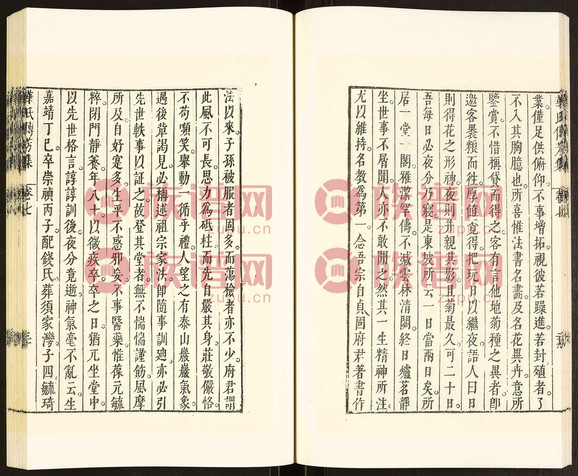 業僅足供俯仰不事增拓視彼若躁進若封殖者了
不入其胸臆也所喜惟法書名畫及名花異卉意所
鑒賞不惜損貸而得之客有言他地菊種之異者即
邀客裹糧而往厚值竟得把玩日以繼夜語人曰日
則得花之形神夜則并親其影也菊最久可二十日
吾每日必夜分乃寢是東坡所云一日當兩日矣所
居一堂一閣雅潔
不滅雲林清閟終日爐茗靜
坐世事不屑聞人亦不敢聞之然其一生精神所注
尤以維持名教為第一念吾宗自貞固府君著書作
法以來子孫被服者固多而蕩檢者亦不少府君謂
此風不可長思力為砥柱而先自嚴其身莊敬嚴恪
不苟嚬笑舉動一循乎禮人望之有泰山巖巖氣象
過後輩謁見必稱述祖宗家法即隨事訓迪亦必引
先世軼事以証之故登其堂者無不惴惴謹飭風摩
所及自好寔多生平不惑邪妄不事醫藥惟葆元毓
粹閉門靜養年八十以微疾卒卒之日猶兀坐堂中
以先世格言諄諄訓後夜分竟逝神氣毫不亂云生
嘉靖丁巳卒崇禎丙子配錢氏葬須家灣子四毓琦
華氏傳芳集 卷七
族谱网
zupu.cn